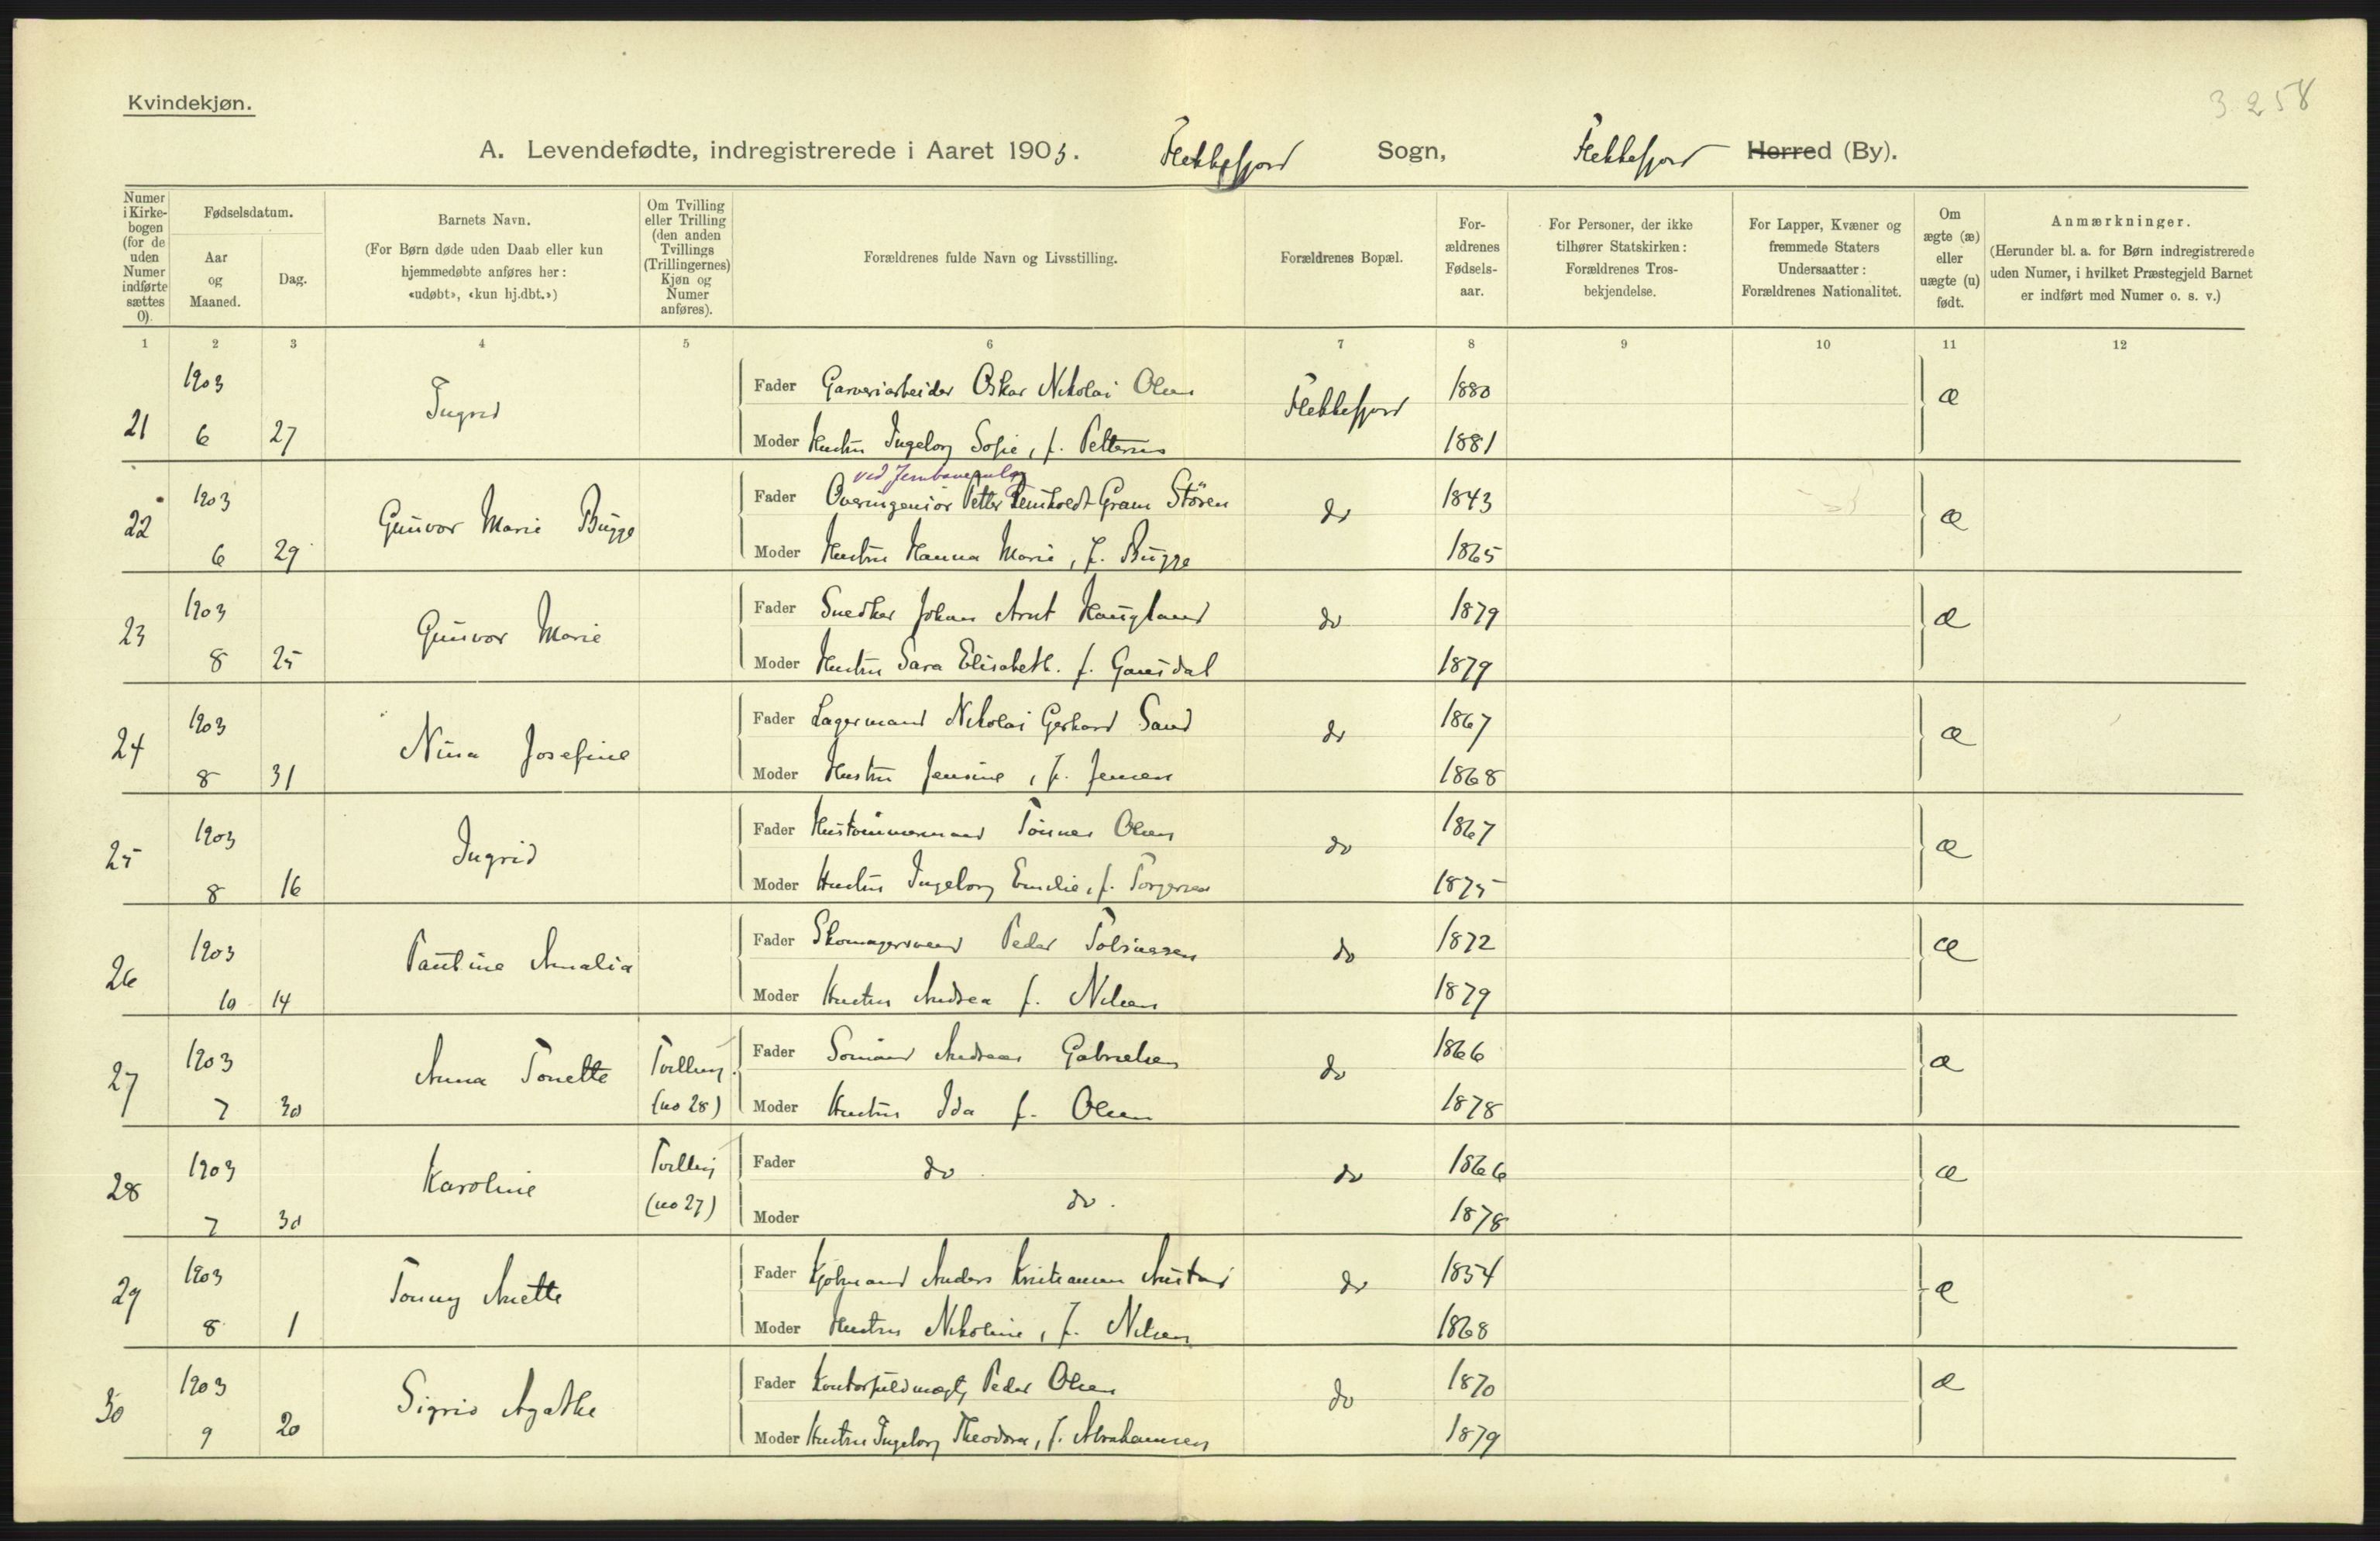 Kvindekjøn.
3.258
A. Levendefødte, indregistrerede i Aaret 1903. Flekkefjord Sogn, Flekkefjord Herred (By).
Numer i Kirkebogen (for de uden Numer indførte sættes 0).
Fødselsdatum.
Aar og Maaned.
Dag.
Barnets Navn.
(For Børn døde uden Daab eller kun hjemmedøbte anføres her: «udøbt», «kun hj.dbt.»)
Om Tvilling eller Trilling (den anden Tvillings (Trillingernes) Kjøn og Numer anføres).
Forældrenes fulde Navn og Livsstilling.
Forældrenes Bopæl.
For-ældrenes Fødsels-aar.
For Personer, der ikke tilhører Statskirken: Forældrenes Tros-bekjendelse.
For Lapper, Kvæner og fremmede Staters Undersaatter: Forældrenes Nationalitet.
Om ægte (æ) eller uægte (u) født.
Anmærkninger.
(Herunder bl. a. for Børn indregistrerede uden Numer, i hvilket Præstegjeld Barnet er indført med Numer o. s. v.)
1 2 3 4 5 6 7 8 9 10 11 12
21 1903 6 27 Ingrid Fader Garveriarbeider Oskar Nikolai Olsen Flekkefjord 1880 æ
Moder Hustru Ingeborg Sofie, f. Pettersen 1881
ved Jernbaneanlæg
22 1903 6 29 Gunvor Marie Bugge Fader Overingeniør Petter Reinholdt Gram Stören do 1843 æ
Moder Hustru Hanna Marie, f. Bugge 1865
23 1903 8 25 Gunvor Marie Fader Snedker Johan Arnt Haugland do 1879 æ
Moder Hustru Sara Elisabeth. f. 1879
24 1903 8 31 Nina Josefine Fader Lagermand Nikolai Gerhard Sand do 1867 æ
Moder Hustru Jensine, f. Jensen 1868
25 1903 8 16 Ingrid Fader Hustømmermand Tønnes Olsen do 1867 æ
Moder Hustru Ingeborg Emelie, f. Torgersen 1875
26 1903 10 14 Pauline Amalia Fader Skomagersvend Peder Tobiassen do 1872 æ
Moder Hustru Andrea f. Nilsen 1879
27 1903 7 30 Anna Tonette Tvilling (no 28) Fader Sømand Andreas Gabrielsen do 1866 æ
Moder Hustru Ida f. Olsen 1878
28 1903 7 30 Karoline Tvilling (no 27) Fader do do 1866 æ
Moder do. 1878
29 1903 8 1 Tonny Anette Fader Kjøbmand Anders Kristiansen Austad do 1854 æ
Moder Hustru Nikoline, f. Nilsen 1868
30 1903 9 20 Sigrid Agathe Fader Kontorfuldmægt. Peder Olsen do 1870 æ
Moder Hustru Ingeborg Theodora, f. Abrahamsen 1879